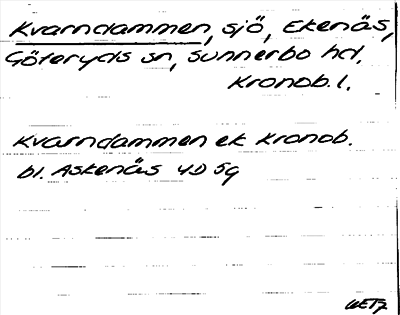 Kvarndammen, sjö, Ekenäs,
Göteryds sn, Sunnerbo hd,
Kronob. l.
Kvarndammen ek Kronob.
bl. Askenäs 4D 5g